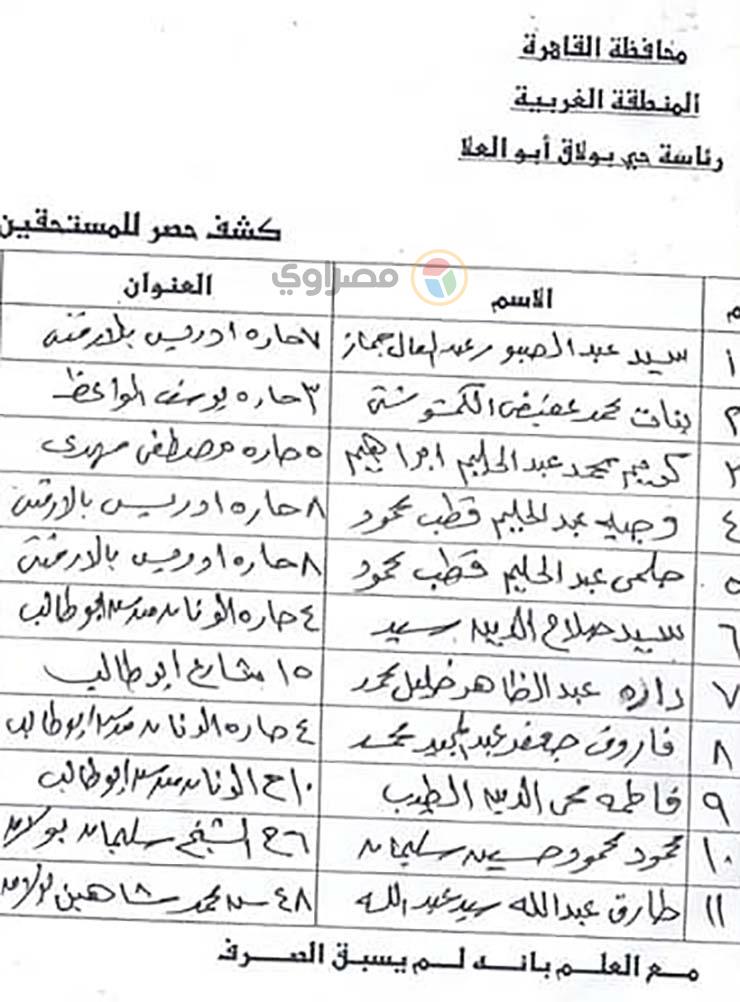 محافظة القاهرة
المنطقة الغربية
رئاسة حي بولاق أبو العلا
كشف حصر للمستحقين
مصراوي
م الاسم العنوان
١ سيد عبد الصبور عبد العال حجاز ٧ حاره ادريس
٢ بنات محمد عفيفى ٣ حاره يوسف الواعظ
٣ كريم محمد عبد الحليم ابراهيم ٥ حاره مصطفى مهدى
٤ وجيه عبد الحليم قطب محمود ٨ حاره ادريس
٥ حلمى عبد الحليم قطب محمود ٨ حاره ادريس
٦ سيد صلاح الدين سيد ٤ حاره ابو طالب
٧ عبد الظاهر خليل محمد ١٥ شارع ابو طالب
٨ فاروق جعفر عبد المجيد محمد ٤ حاره ابو طالب
٩ فاطمه محى الدين الطيب ١٠ ح ابو طالب
١٠ محمود محمود حسين سليمان ٦ ح الشيخ سليمان بولاق
١١ طارق عبد الله سيد عبد الله ٤٨ ش محمد شاهين بولاق
مع العلم بانه لم يسبق الصرف